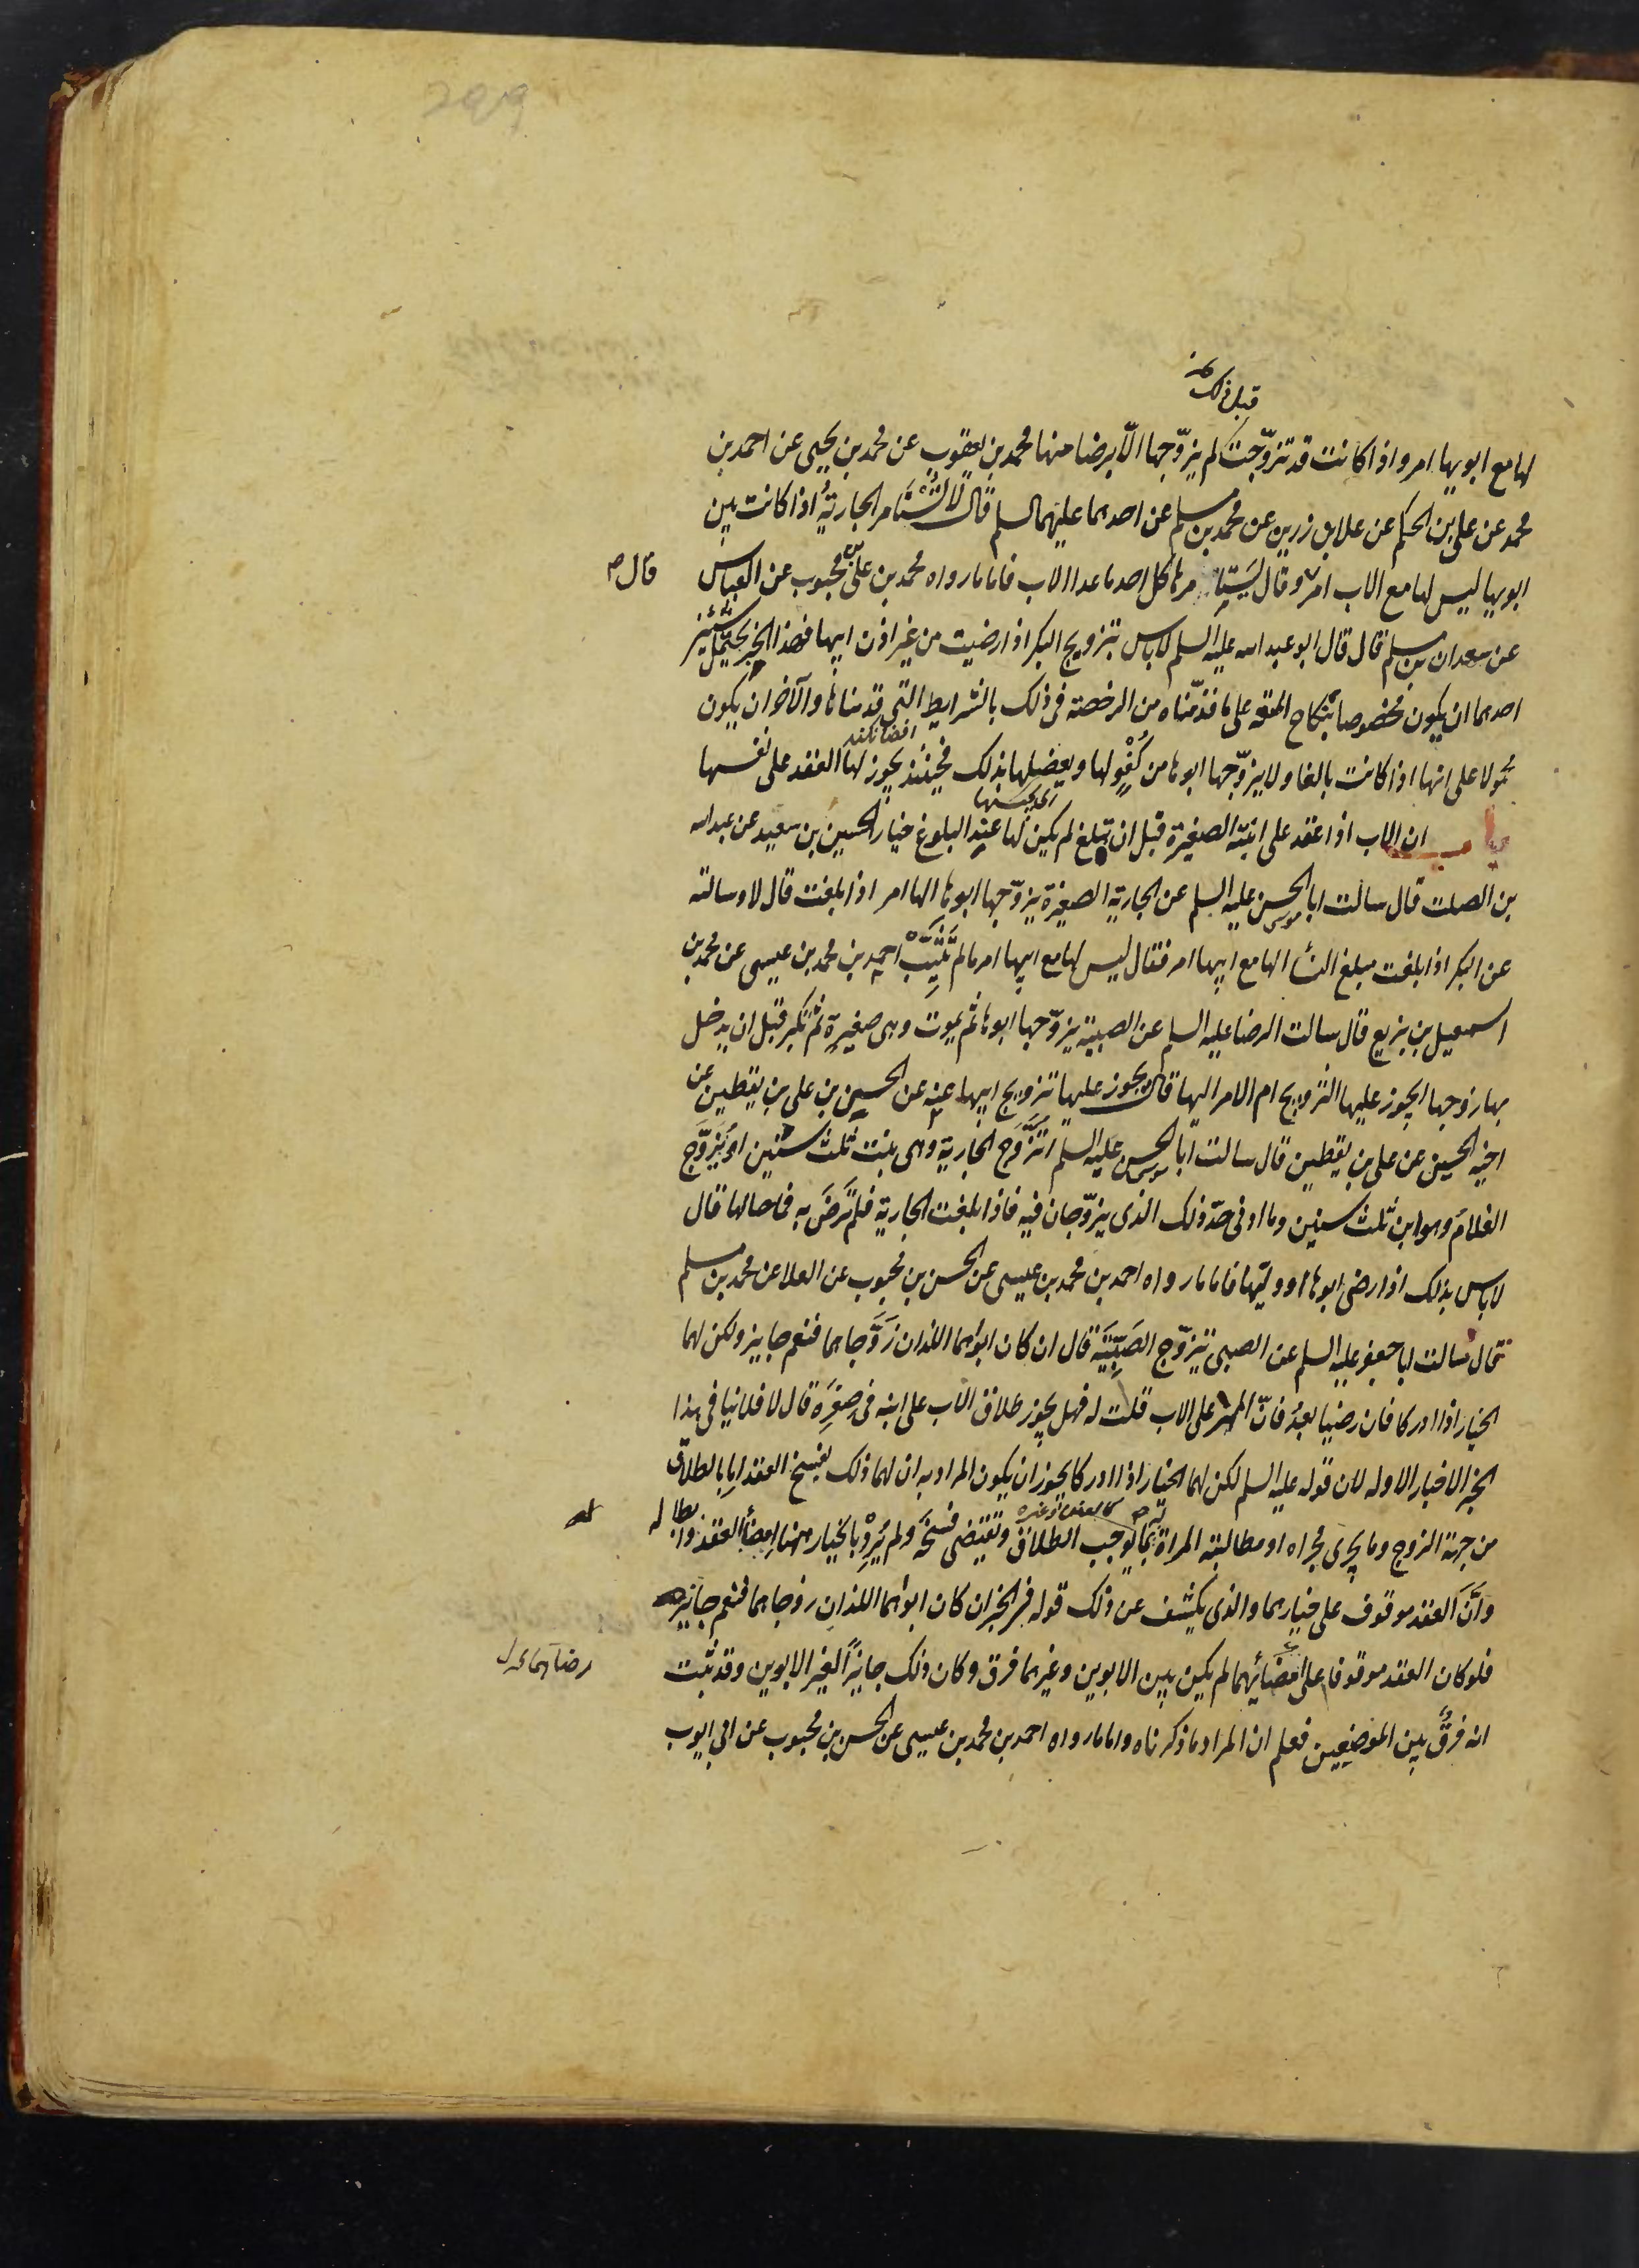 قبل ذلك
لها مع ابويها امر واذا كانت قد تزوّجت لم يزوّجها الّا برضا منها محمد بن يعقوب عن محمد بن يحيى عن احمد بن
محمد عن على بن الحكم عن علا بن رزين عن محمد بن مسلم عن احدهما عليهما السلم قال لا تُسْتَأمر الجاريةُ اذا كانت بين
ابويها ليس لها مع الاب امر وقال يستامرها كل احد ما عدا الاب فاما ما رواه محمد بن على بن محبوب عن العباس
قال
عن سعدان بن مسلم قال قال ابو عبد الله عليه السلم لا باس بتزويج البكر اذا رضيت من غير اذن ابيها فهذا الخبر يحتمل شيئين
احدهما ان يكون مخصوصا بنكاح المتعه على ما قدّمناه من الرخصة فى ذلك بالشرايط التى قدمناها والآخر ان يكون
محمولا على انها اذا كانت بالغا ولا يزوّجها ابوها من كُفْوٍ لها ويعضلها بذلك فحينئذ يجوز لها العقد على نفسها
باب ان الاب اذا عقد على ابنته الصغيرة قبل ان تبلغ لم يكن لها عند البلوغ خيار الحسين بن سعيد عن عبد الله
بن الصلت قال سالت ابا الحسن موسى عليه السلم عن الجارية الصغيرة يزوّجها ابوها الها امر اذا بلغت قال لا وسالته
عن البكر اذا بلغت مبلغ النسا الها مع ابيها امر فقال ليس لها مع ابيها امر ما لم تثيّب احمد بن محمد بن عيسى عن محمد بن
اسمعيل بن بزيع قال سالت الرضا عليه السلم عن الصبية يزوّجها ابوها ثم يموت وهى صغيرة ثم تكبر قبل ان يدخل
بها زوجها ايجوز عليها التزويج ام الامر اليها قال يجوز عليها تزويج ابيها عنه عن الحسين بن على بن يقطين عن
اخيه الحسين عن على بن يقطين قال سالت ابا الحسن موسى عليه السلم اتُزَوَّج الجارية وهى بنت ثلث سنين او يُزَوَّج
الغلام وهو ابن ثلث سنين وما ادنى حدّ ذلك الذى يزوّجان فيه فاذا بلغت الجارية فلم تَرضَ به فما حالها قال
لا باس بذلك اذا رضى ابوها او وليّها فاما ما رواه احمد بن محمد بن عيسى عن الحسن بن محبوب عن العلا عن محمد بن مسلم
قال سالت ابا جعفر عليه السلم عن الصبى يتزوّج الصَبِيَّة قال ان كان ابواهما اللذان زَوَّجاهما فنعم جايز ولكن لهما
الخيار اذا ادركا فان رضيا بعدُ فانّ المهر على الاب قلت له فهل يجوز طلاق الاب على ابنه فى صِغَرِه قال لا فلا ينافى هذا
الخبر الاخبار الاوله لان قوله عليه السلم لكن لهما الخيار اذا ادركا يجوز ان يكون المراد به ان لهما ذلك بفسخ العقد اما بالطلاق
من جهة الزوج وما يجرى مجراه او مطالبة المراة بما يوجب الطلاق وتقتضى فسخَه ولم يُرِدْ بالخيار ههنا امضاء العقد وابطاله
وأنّ العقد موقوف على خيارهما والذى يكشف عن ذلك قوله فى الخبر ان كان ابواهما اللذان زوجاهما فنعم جايز
فلو كان العقد موقوفا على امضائهما لم يكن بين الابوين وغيرهما فرق وكان ذلك جايزاً لغير الابوين وقد ثبت
انه فرقٌ بين الموضعين فعلم ان المراد ما ذكرناه واما ما رواه احمد بن محمد بن عيسى عن الحسن بن محبوب عن ابى ايوب